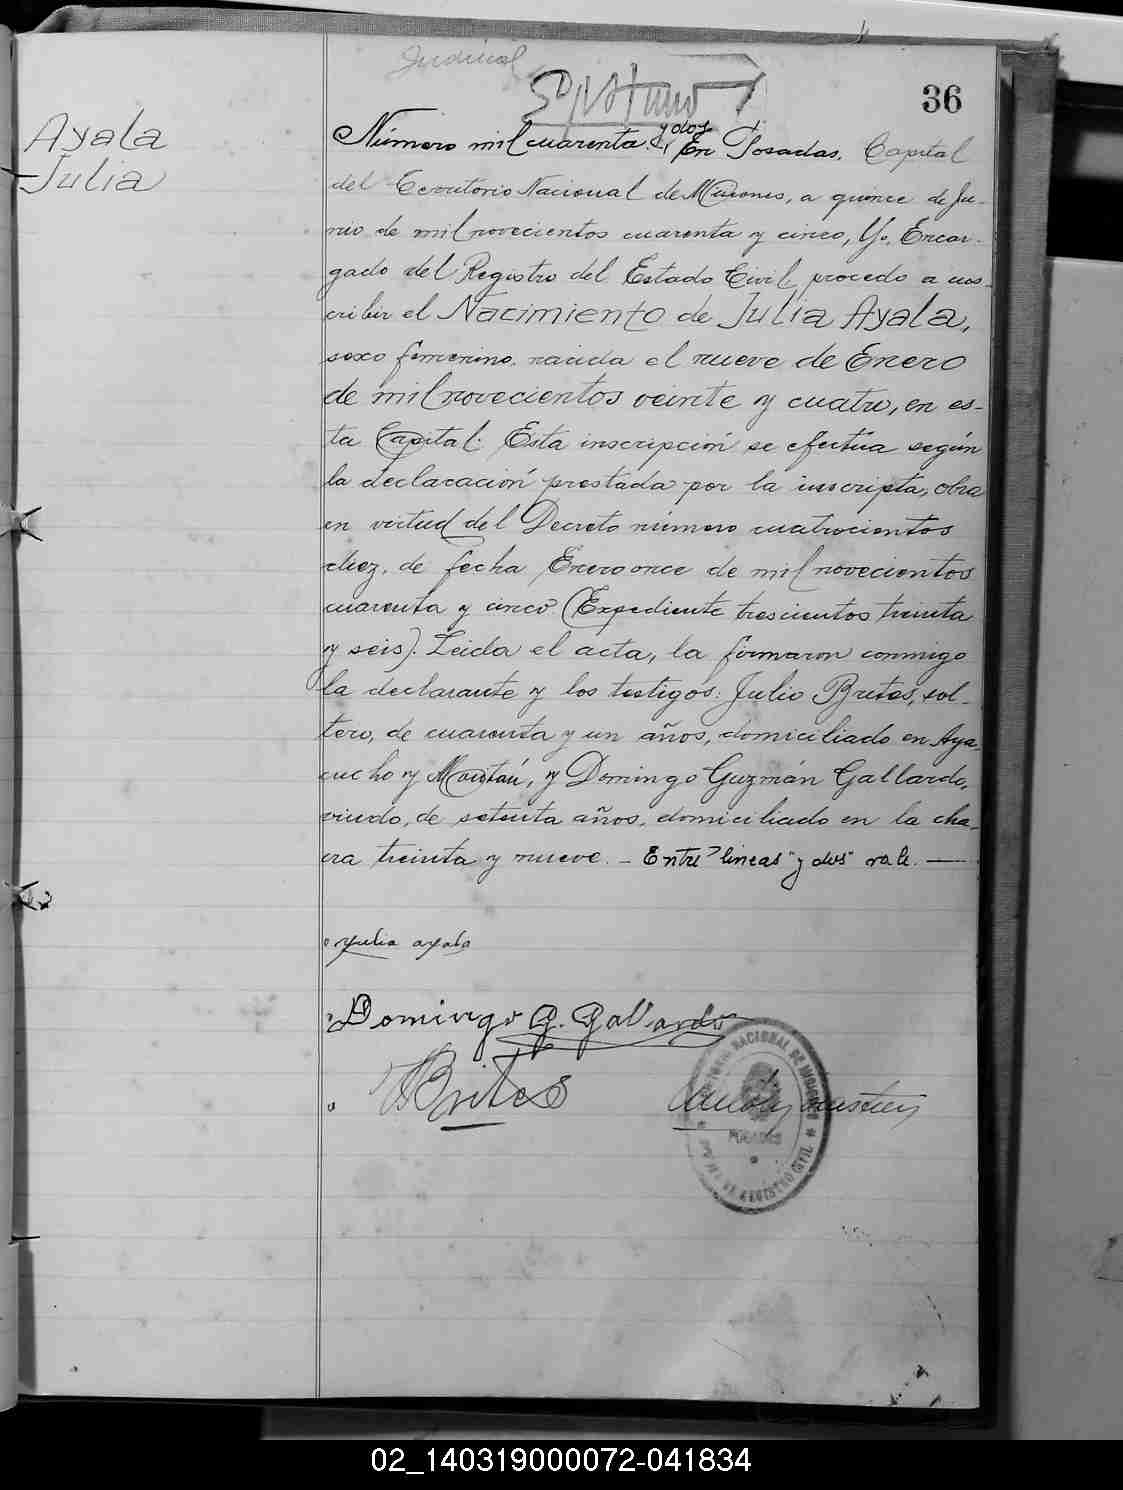 Judicial
36
Ayala
Julia
y dos
Número mil cuarenta. En Posadas, Capital
del Territorio Nacional de Misiones, a quince de Ju-
nio de mil novecientos cuarenta y cinco, Yo, Encar-
gado del Registro del Estado Civil, procedo a ins-
cribir el Nacimiento de Julia Ayala,
sexo femenino, nacida el nueve de Enero
de mil novecientos veinte y cuatro, en es-
ta Capital. Esta inscripción se efectúa según
la declaración prestada por la inscripta, obra
en virtud del Decreto número cuatrocientos
diez, de fecha Enero once de mil novecientos
cuarenta y cinco (Expediente trescientos treinta
y seis). Leida el acta, la firmaron conmigo
la declarante y los testigos: Julio Brites, sol-
tero, de cuarenta y un años, domiciliado en Aya-
cucho y Moritán, y Domingo Guzmán Gallardo,
viudo, de setenta años, domiciliado en la cha-
cra treinta y nueve. - Entre líneas "y dos" vale. —
Julia ayala
Domingo G. Gallardo
JBrites
NACIONAL DE MISIONES
POSADAS
DE REGISTRO CIVIL
02_140319000072-041834